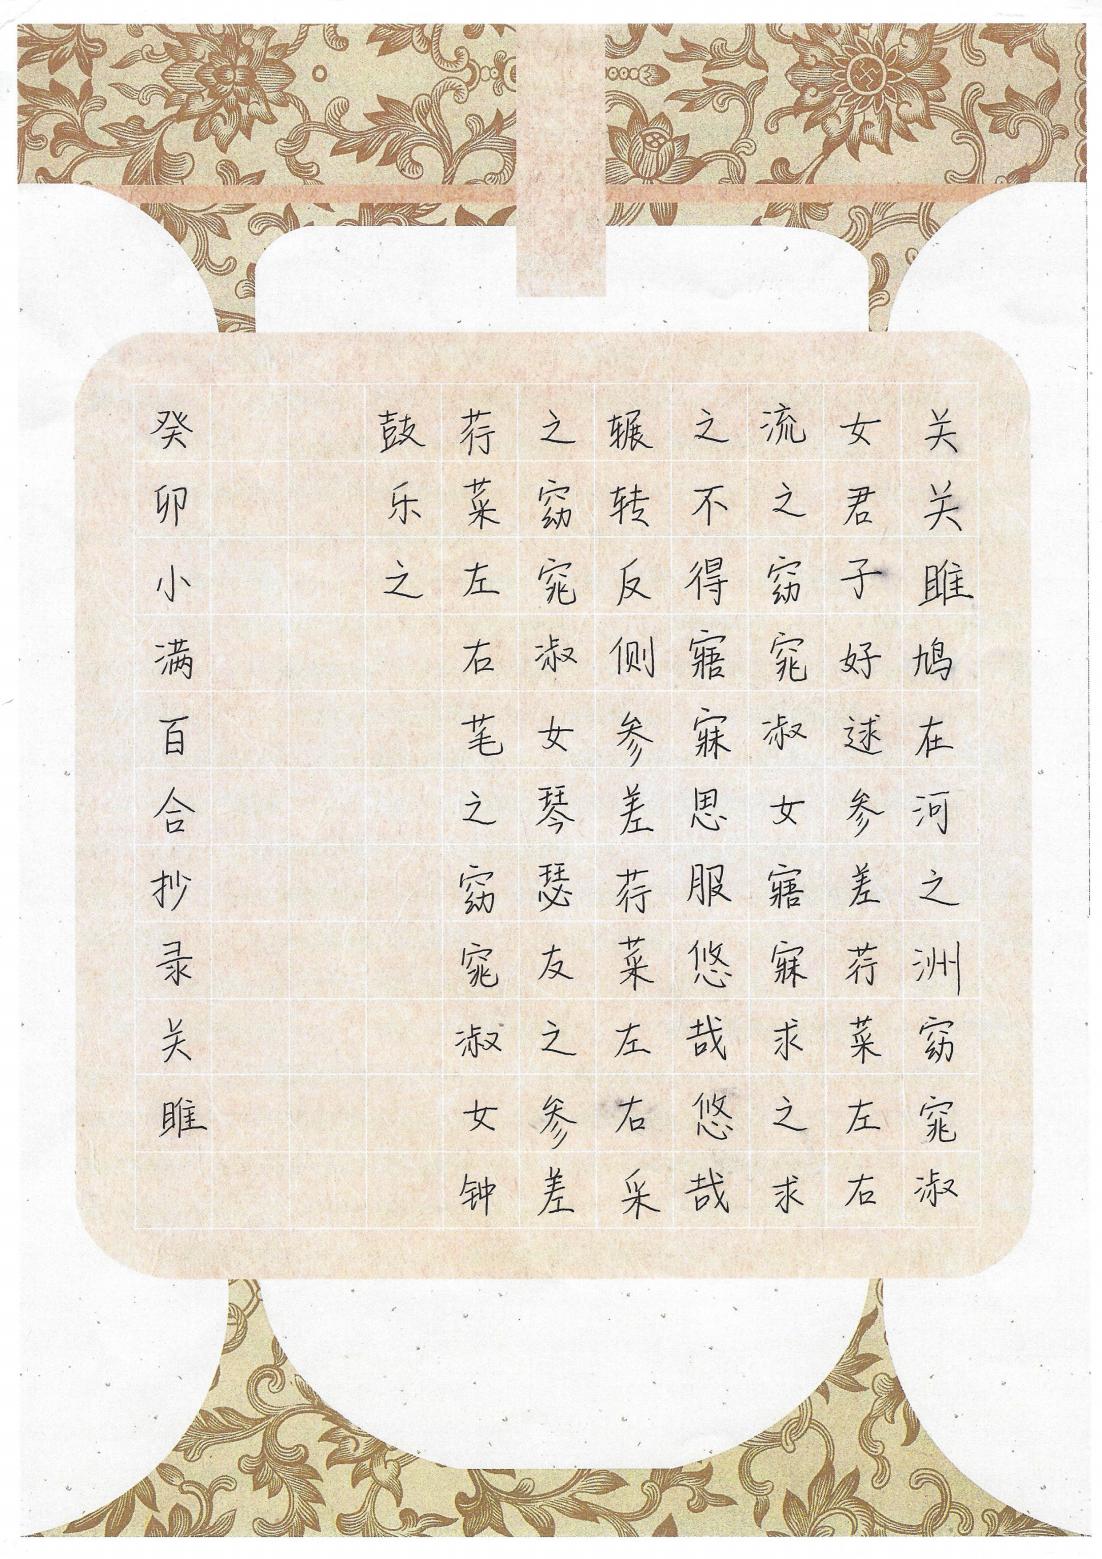 关关雎鸠在河之洲窈窕淑
女君子好逑参差荇菜左右
流之窈窕淑女寤寐求之求
之不得寤寐思服悠哉悠哉
辗转反侧参差荇菜左右采
之窈窕淑女琴瑟友之参差
荇菜左右芼之窈窕淑女钟
鼓乐之
癸卯小满百合抄录关雎